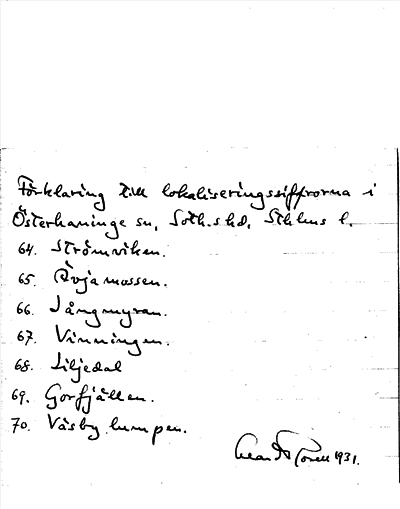 Förklaring till lokaliseringssiffrorna i
Österhaninge sn, Soth.s hd, Sthlms l.
64. Strömviken.
65. Rojamossen.
66. Långmyran.
67. Vinningen.
68. Liljedal
69. Gorfjällen.
70. Väsby lumpen.
1931.